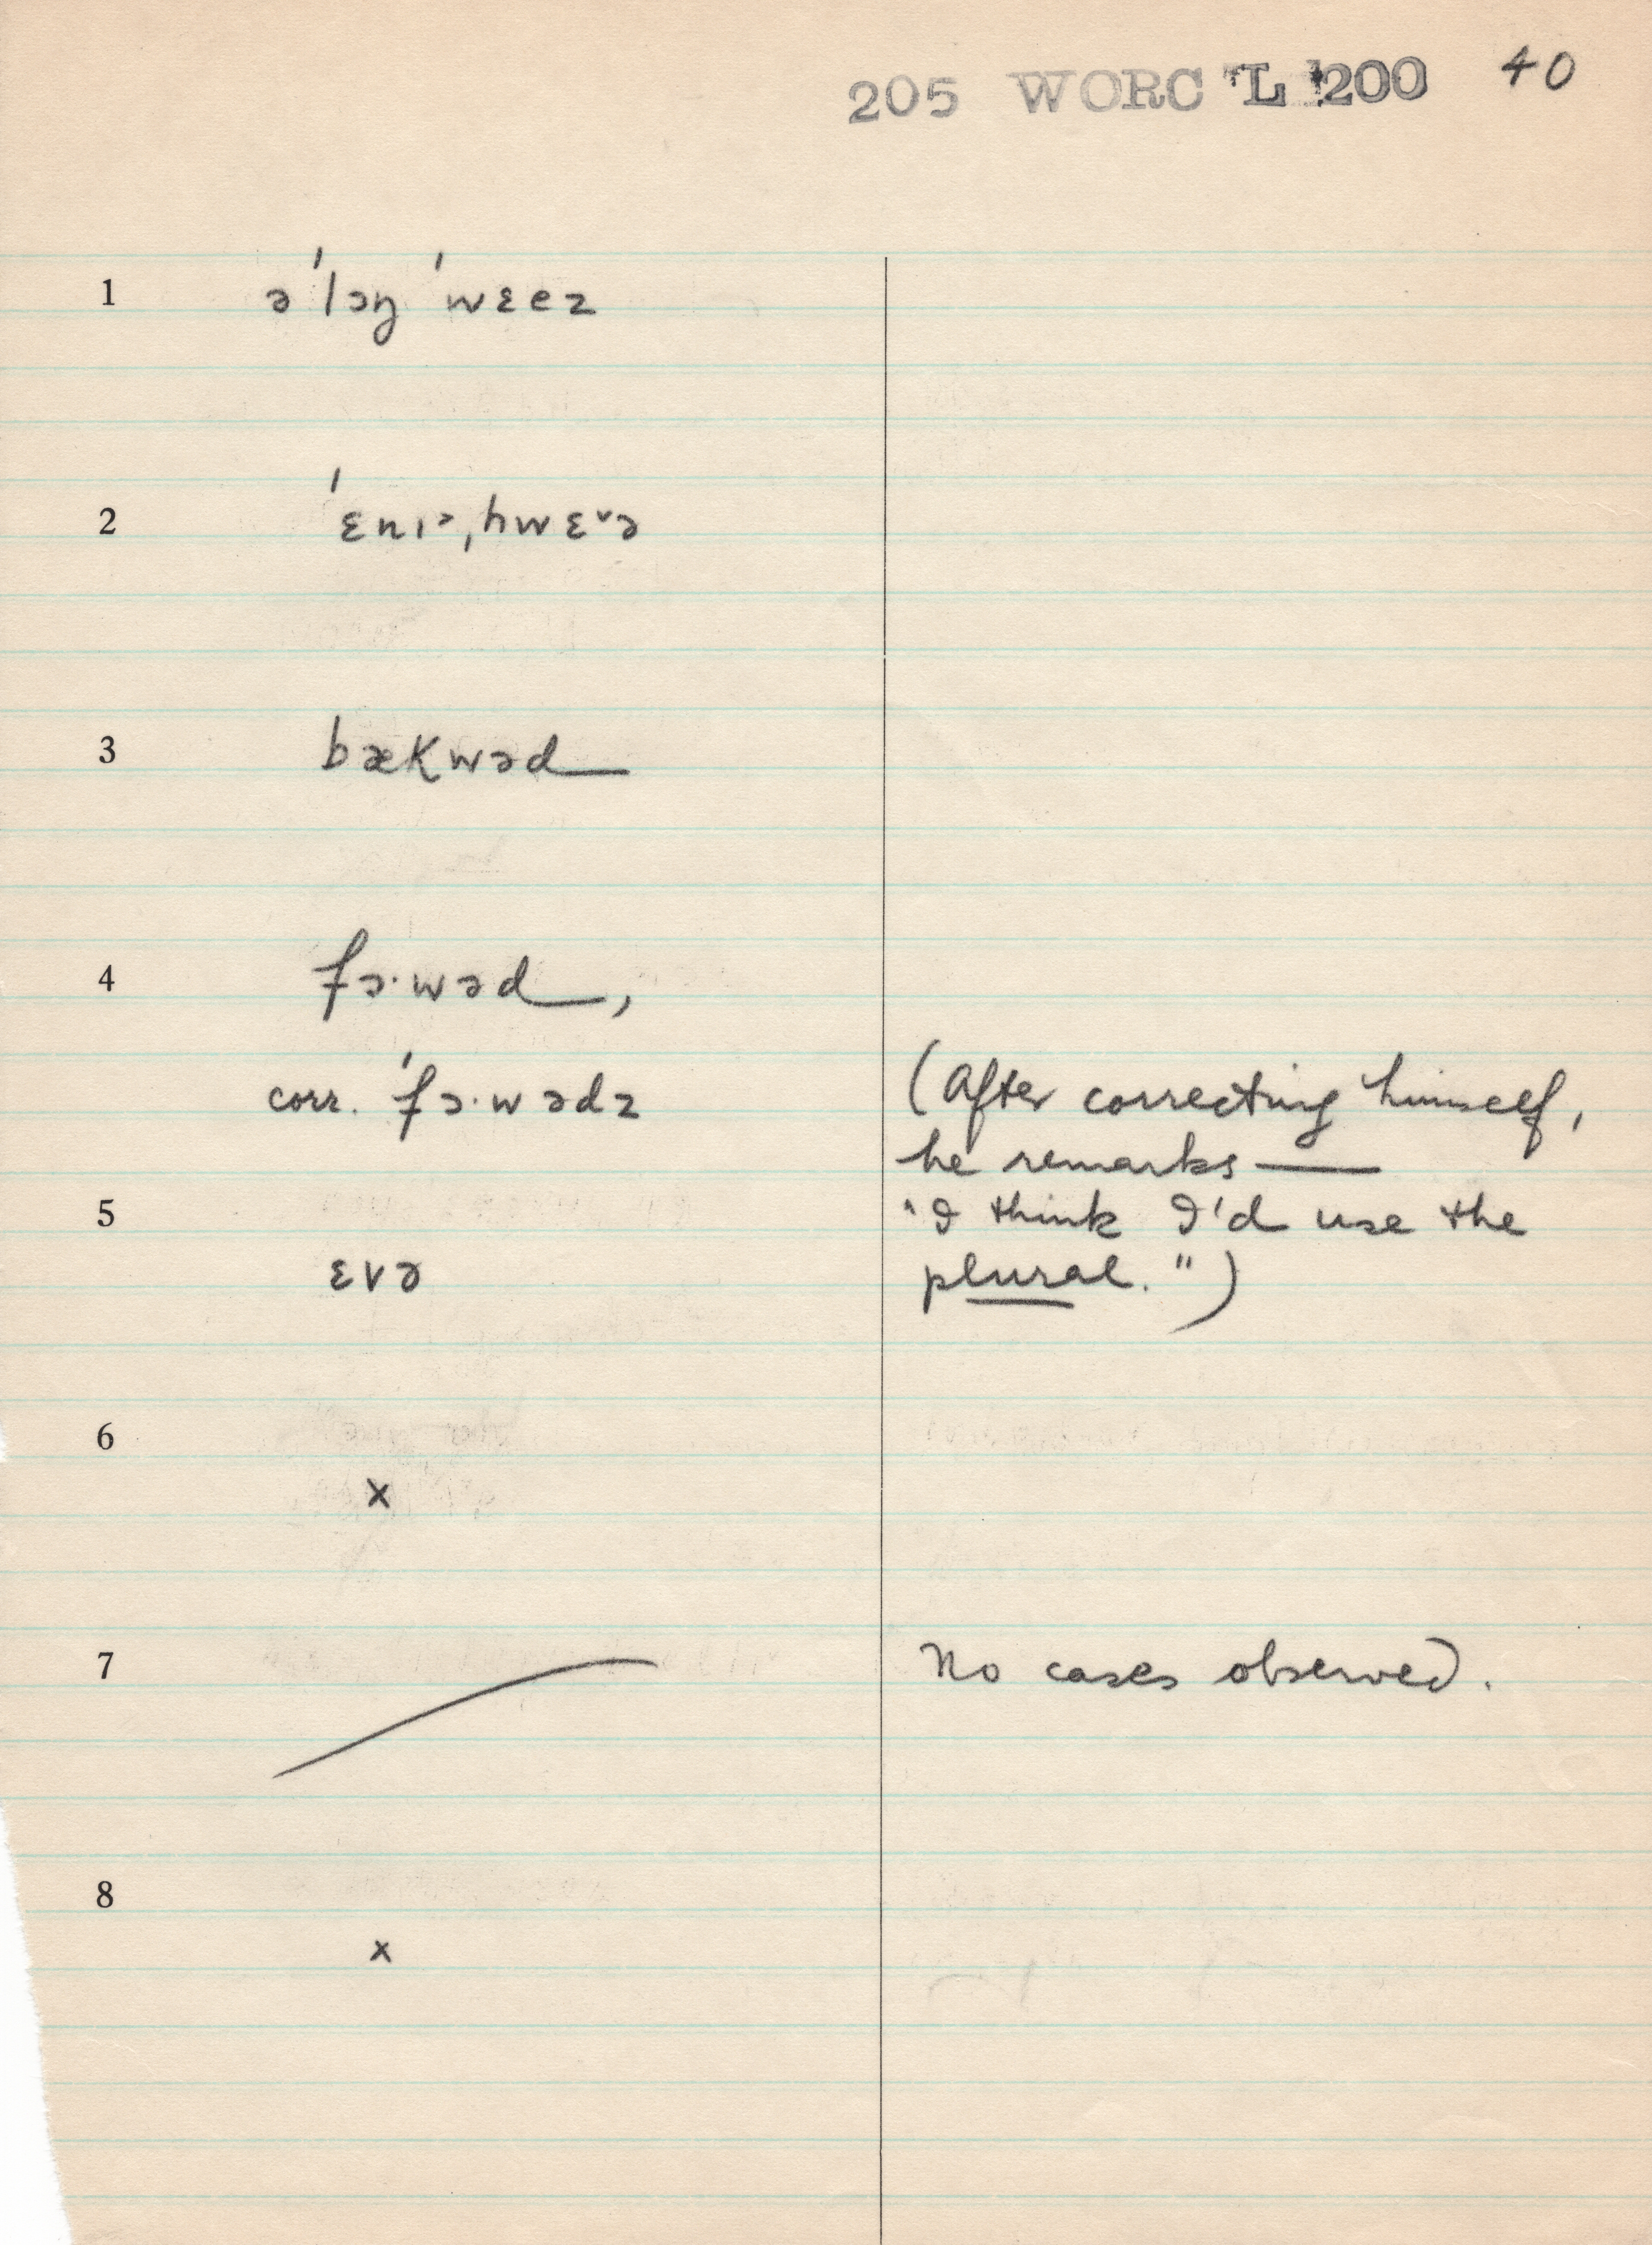 205 WORC L 200 40
1 ə'lɔŋ 'wɛez
2 'ɛnɪ˃ˌhwɛ˅ə
3 bækwəd
4 fɔ·wəd,
corr. 'fɔ·wədz (After correcting himself,
he remarks —
5 "I think I'd use the
ɛvə plural.")
6
x
7 No cases observed.
8
x